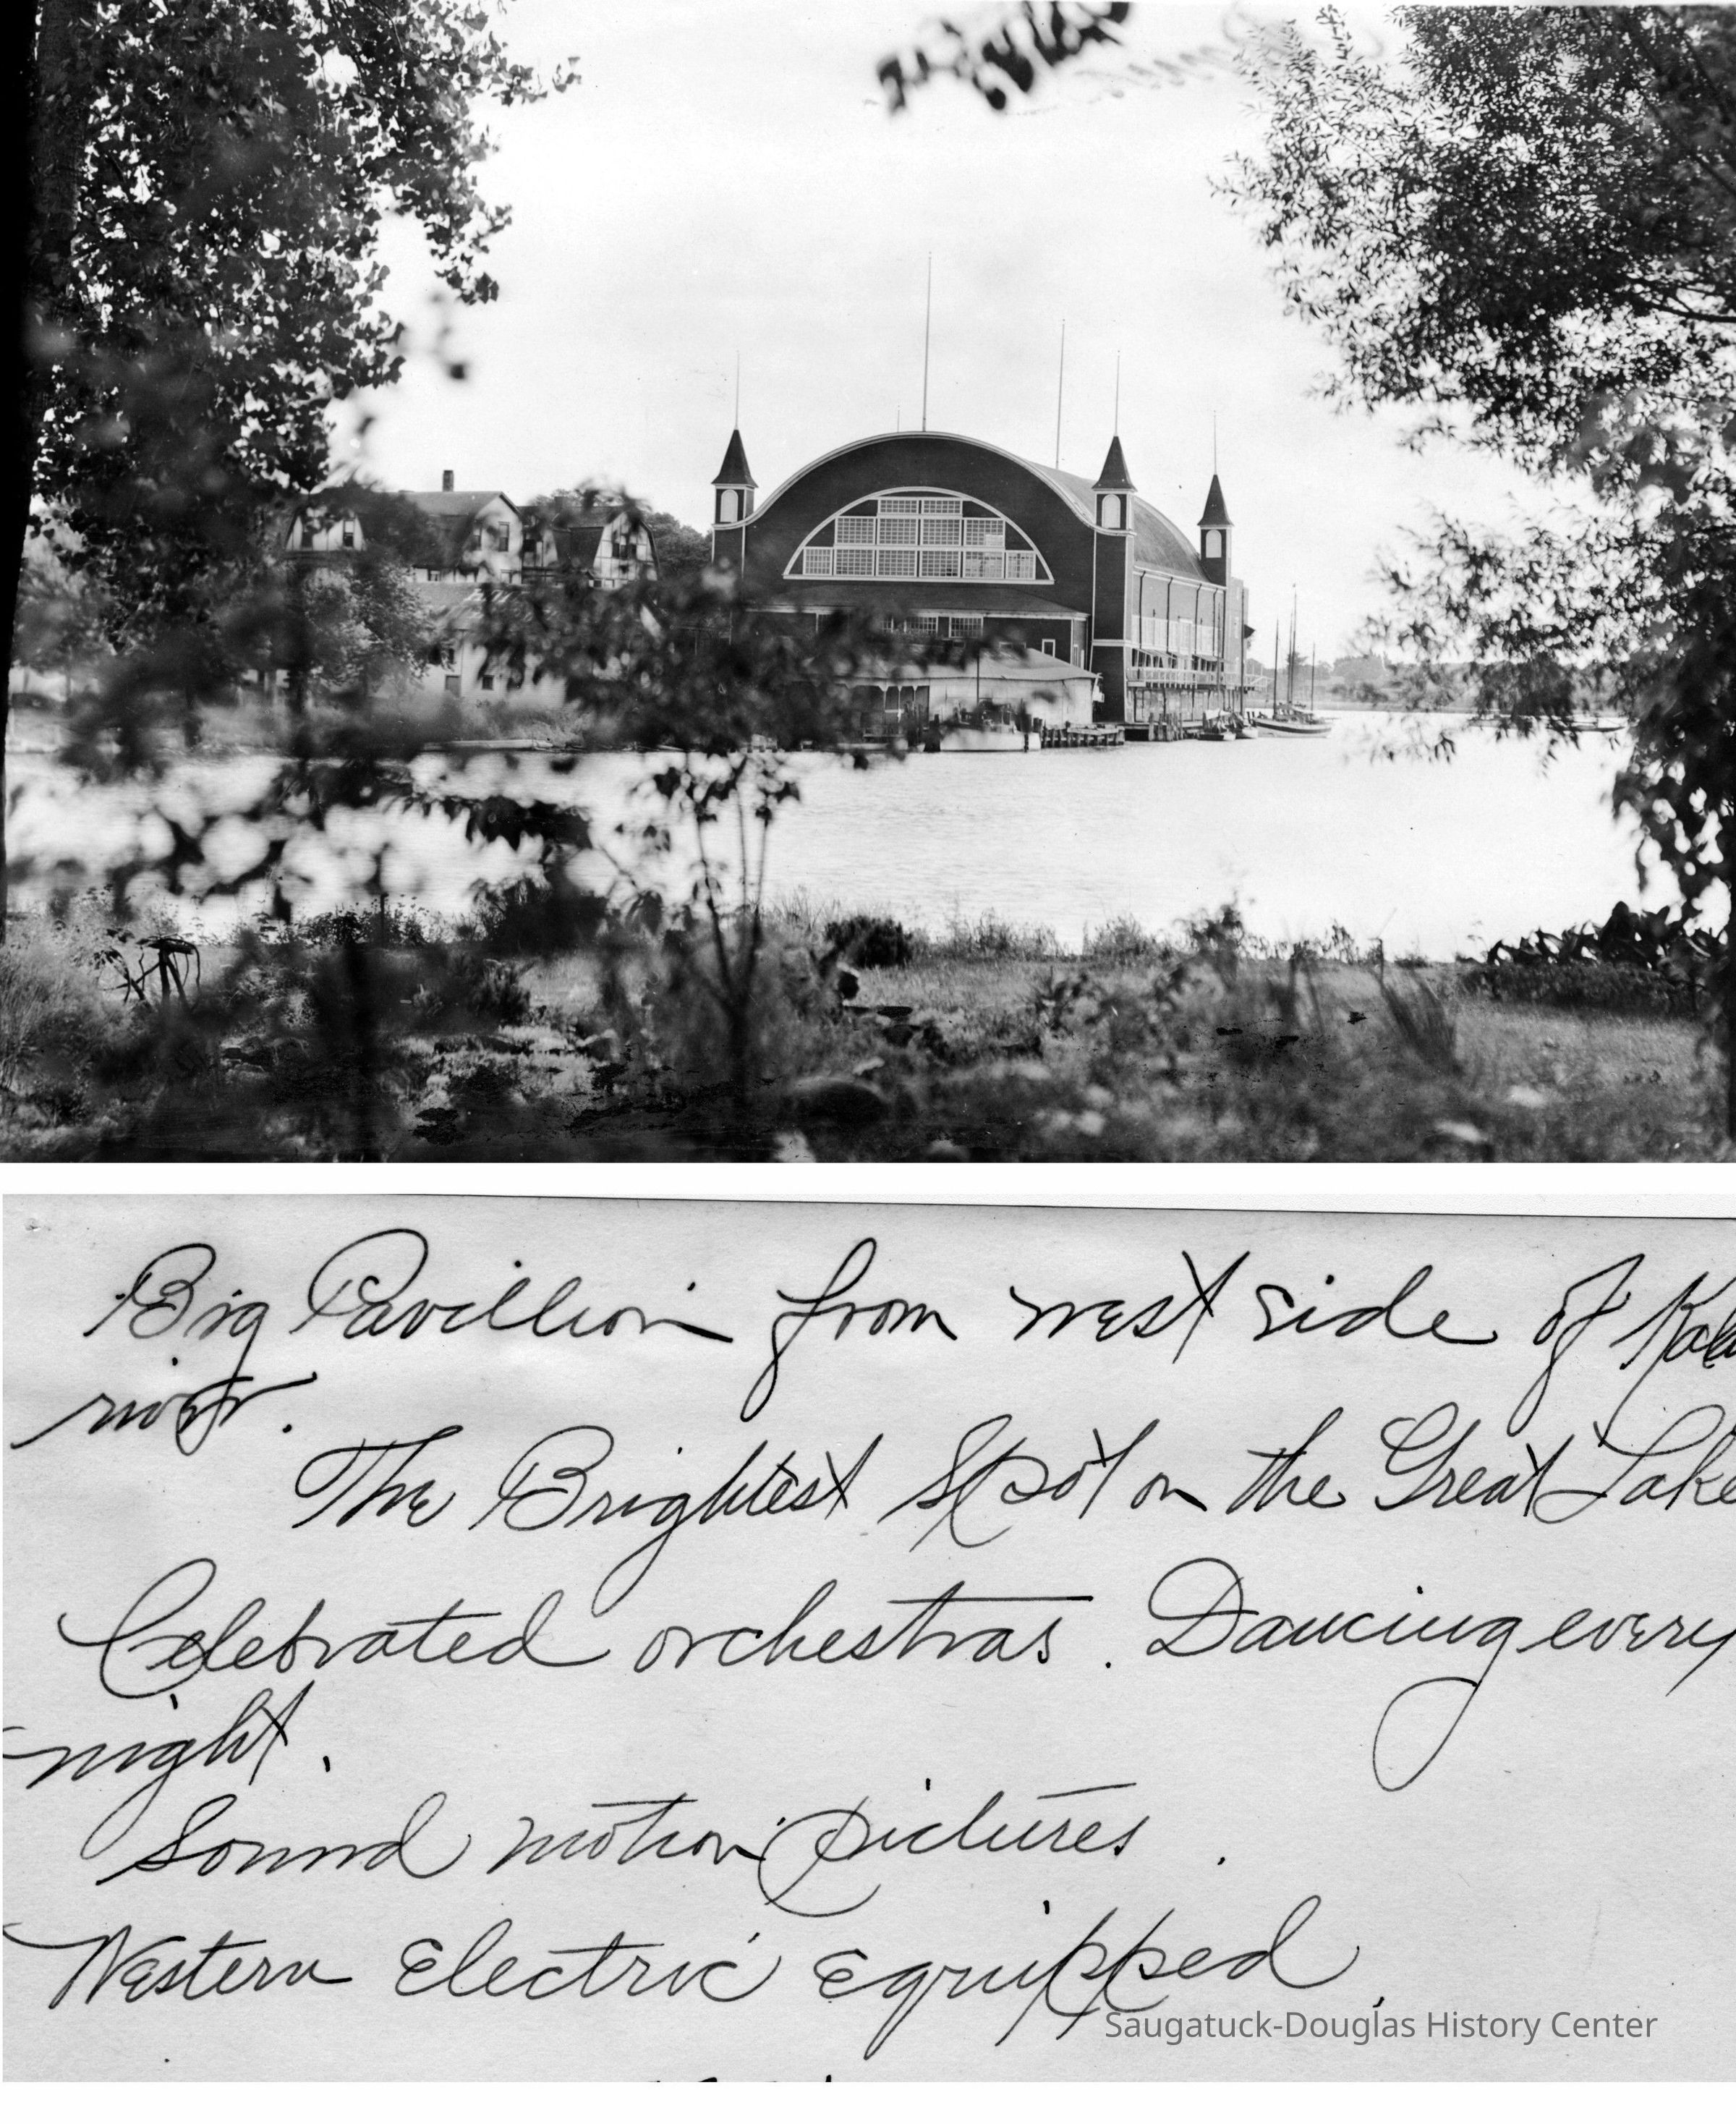 Big Pavillion from west side of Kala
river.
The Brightest Spot on the Great Lake
Celebrated orchestras. Dancing every
night.
Sound motion pictures.
Western Electric Equipped.
Saugatuck-Douglas History Center